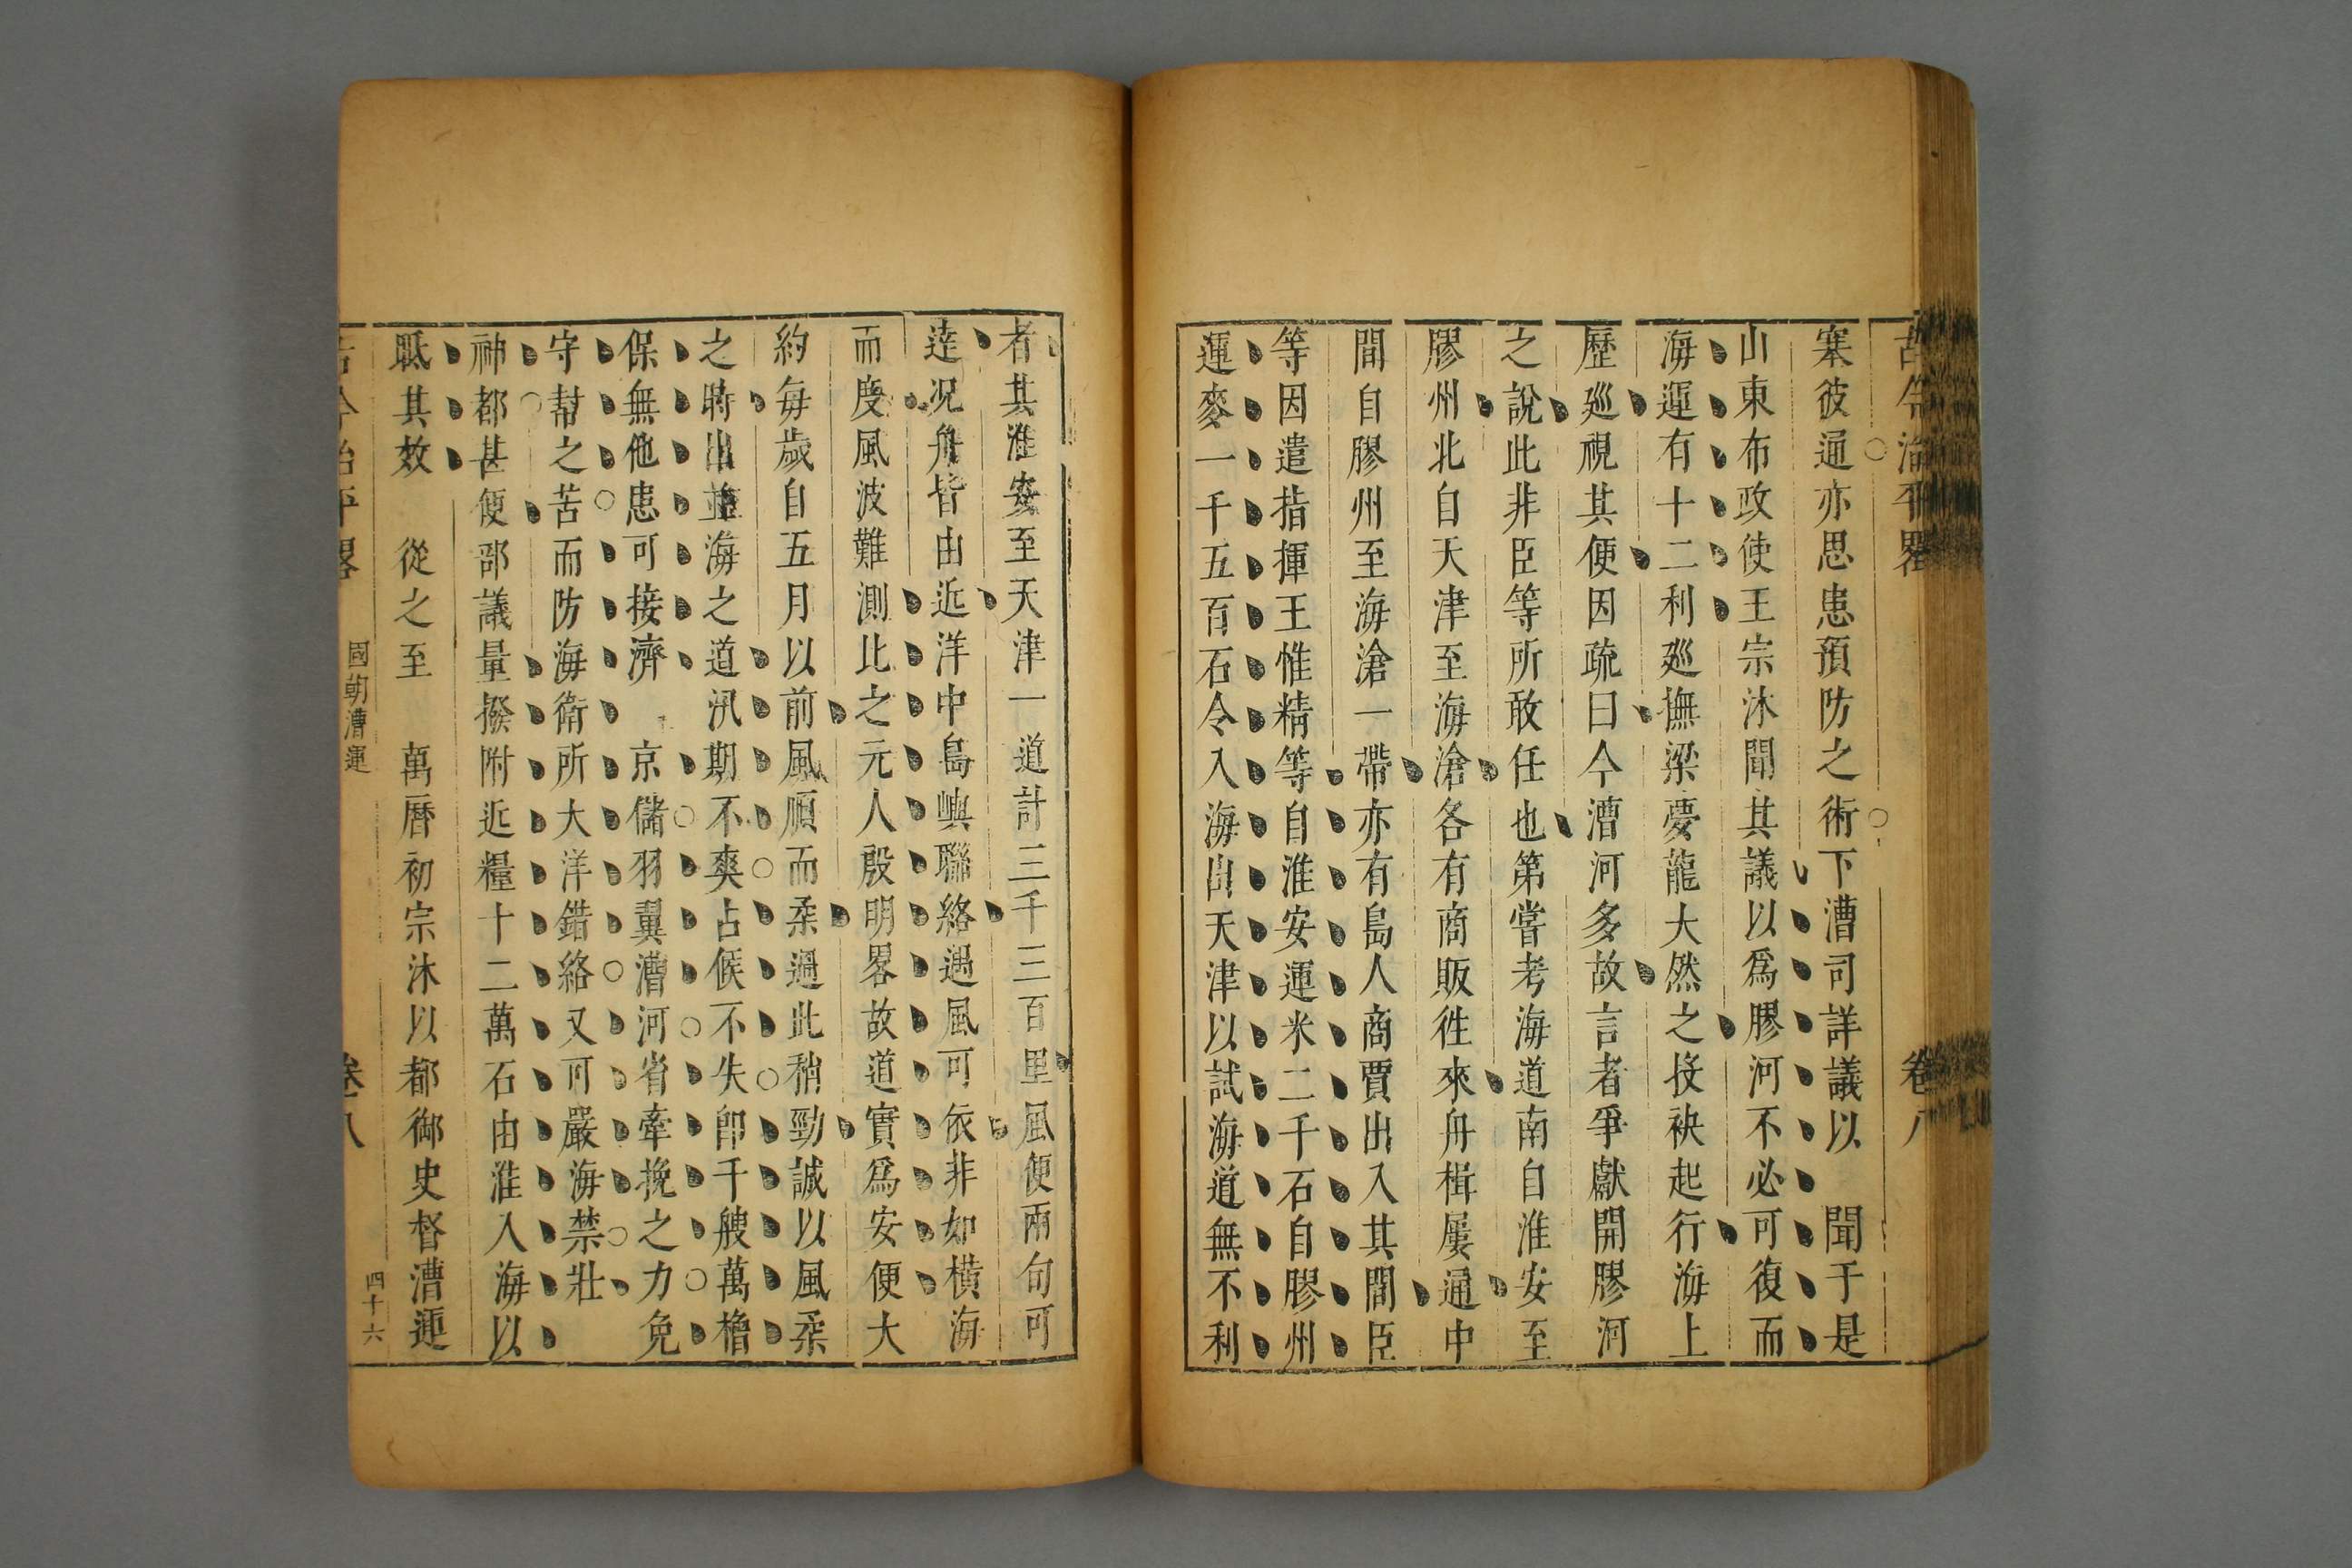 古今治平畧 卷八
塞彼通亦思患預防之術下漕司詳議以 聞于是
山東布政使王宗沐聞其議以爲膠河不必可復而
海運有十二利廵撫梁夢龍大然之投袂起行海上
歷廵視其便因疏曰今漕河多故言者爭獻開膠河
之說此非臣等所敢任也第嘗考海道南自淮安至
膠州北自天津至海滄各有商販徃來舟楫屢通中
間自膠州至海滄一帶亦有島人商賈出入其間臣
等因遣指揮王惟精等自淮安運米二千石自膠州
運麥一千五百石令入海出天津以試海道無不利
者其淮安至天津一道計三千三百里風便兩旬可
達况舟皆由近洋中島嶼聯絡遇風可依非如橫海
而度風波難測比之元人殷明畧故道實爲安便大
約每歲自五月以前風順而柔過此稍勁誠以風柔
之時出並海之道汛期不爽占候不失卽千艘萬櫓
保無他患可接濟 京儲羽翼漕河省牽挽之力免
守幇之苦而防海衛所大洋錯絡又可嚴海禁壯
神都甚便部議量撥附近糧十二萬石由淮入海以
眂其效 從之至 萬曆初宗沐以都御史督漕運
古今治平畧 國朝漕運 卷八 四十六